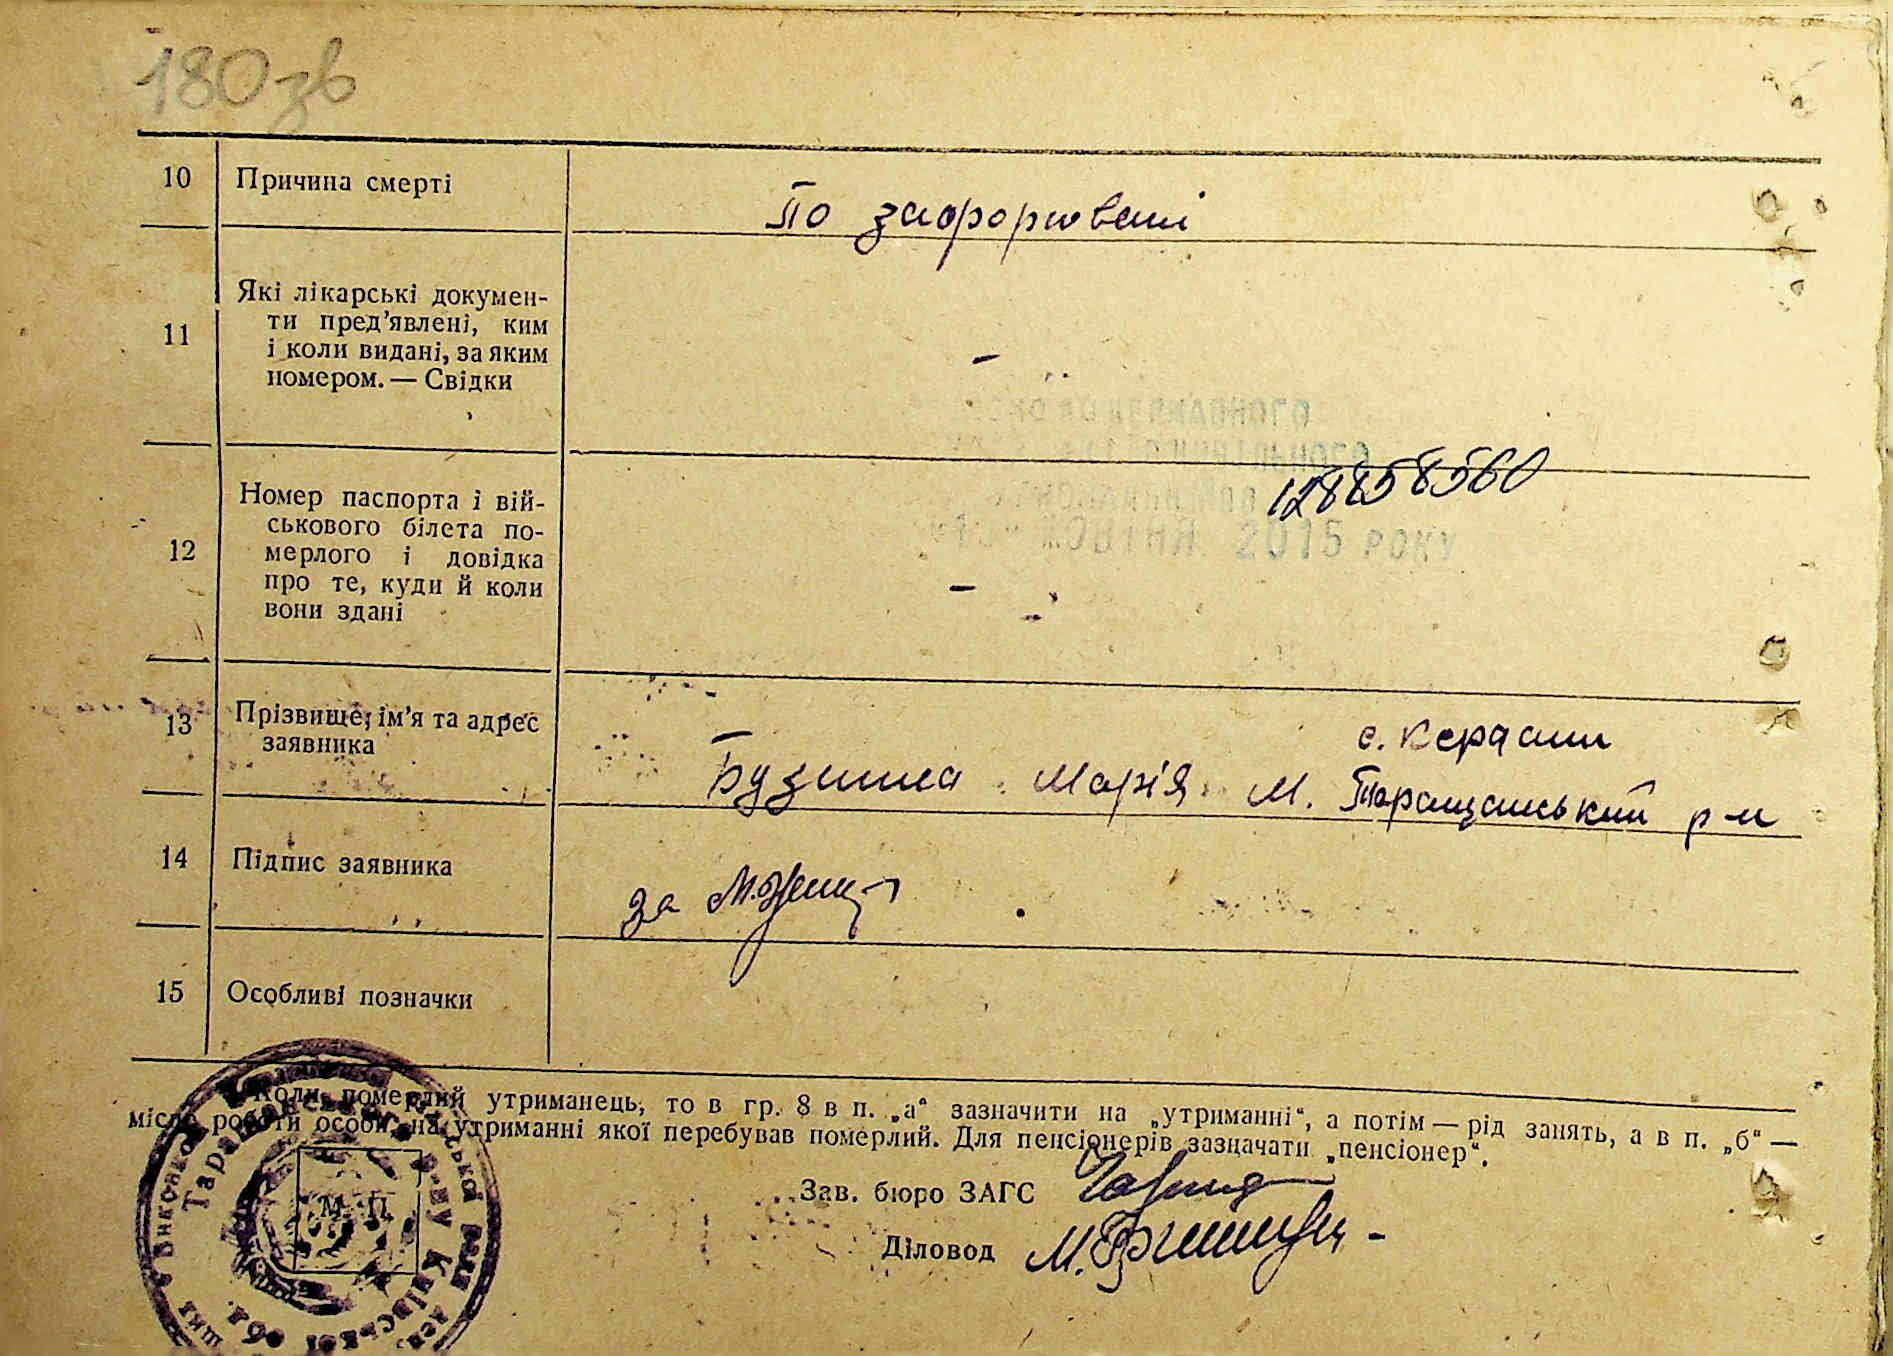 180зв
10 Причина смерті
По заформовані
11 Які лікарські докумен-
ти пред’явлені, ким
і коли видані, за яким
номером. — Свідки
–
ДЕРЖАВНОГО
128858560
ЖОВТНЯ 2015 РОКУ
12 Номер паспорта і вій-
ськового білета по-
мерлого і довідка
про те, куди й коли
вони здані
–
13 Прізвище, ім’я та адрес
заявника
с. Кердани
Марія М. Таращанський р-н
14 Підпис заявника
за
15 Особливі позначки
Коли померлий утриманець, то в гр. 8 в п. „а“ зазначити на „утриманні“, а потім — рід занять, а в п. „б“ —
місце роботи особи, на утриманні якої перебував померлий. Для пенсіонерів зазначати „пенсіонер“.
М П
Зав. бюро ЗАГС
Діловод М.
Київської